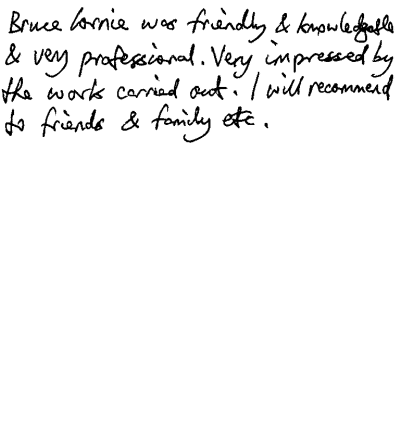 Bruce was friendly & knowledgeable
& very professional. Very impressed by
the work carried out. I will recommend
to friends & family etc.